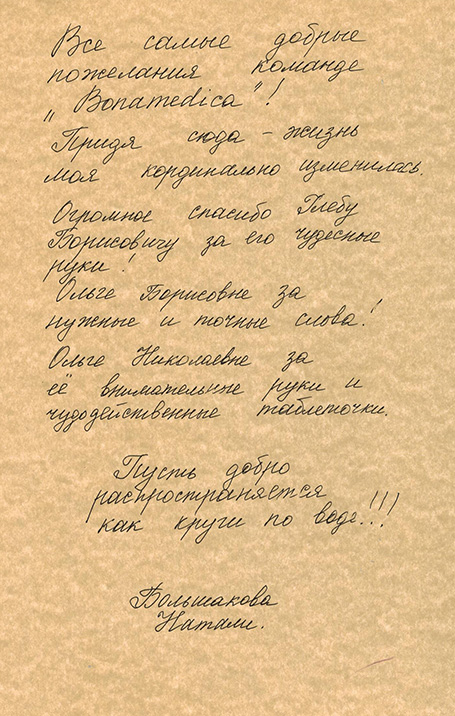 Все самые добрые
пожелания команде
„Bonamedica"!
Придя сюда - жизнь
моя кординально изменилась.
Огромное спасибо Глебу
Борисовичу за его чудесные
руки!
Ольге Борисовне за
нужные и точные слова!
Ольге Николаевне за
её внимательные руки и
чудодейственные таблеточки.
Пусть добро
распространяется
как круги по воде!!!
Большакова
Натали.